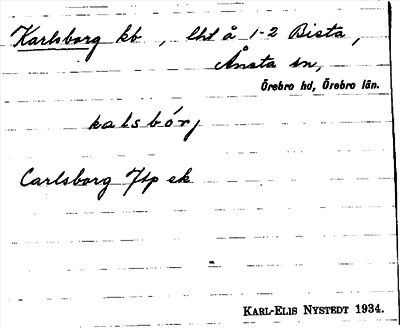 Karlsborg kb , lht å 1-2 Bista,
Ånsta sn,
Örebro hd, Örebro län.
kalsbórj
Carlsborg Jtp ek
KARL-ELIS NYSTEDT 1934.